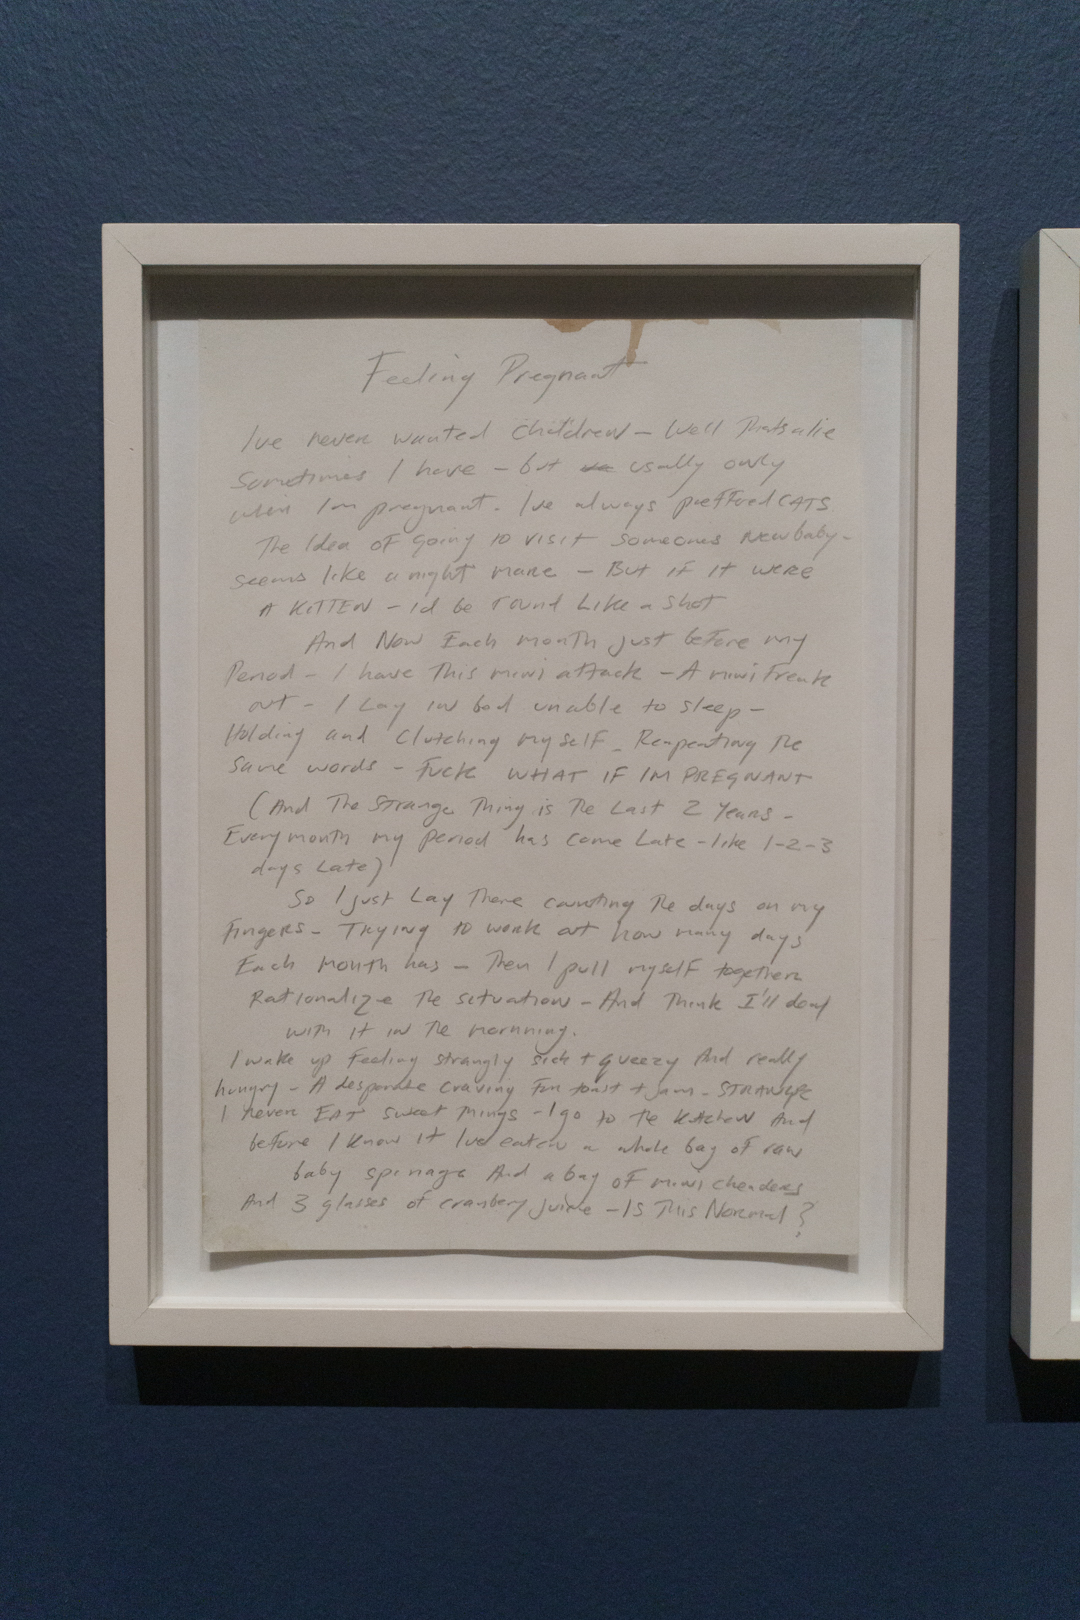 Feeling Pregnant
Ive never wanted Children - Well Thats a lie
Sometimes I have - but usally only
when Im pregnant. Ive always preffredCATS.
The Idea of going to visit someones New baby -
seems like a night mare - But if it were
A KITTEN - id be round Like a shot
And Now Each month just before my
Period - I have This mini attack - A mini freak
out - I Lay in bed unable to sleep -
Holding and Clutching myself - Reapeating The
Same words - Fuck WHAT IF IM PREGNANT
(And The Strange Thing is The Last 2 Years -
Every month my period has come Late - like 1-2-3
days Late)
So I just Lay There counting The days on my
fingers - Trying to work out how many days
Each Month has - Then I pull myself together
Rationalize The situation - And Think I'll deal
with it in The mornning.
I wake up Feeling strangly sick + queezy And really
hungry - A desperate craving For toast + jam - STRANGE
I never EAT sweet Things - I go to The Kitchen And
before I Know it Ive eaten a whole bag of raw
baby spinage And a bag of mini chendars
And 3 glasses of cranbery juice - Is This Normal?